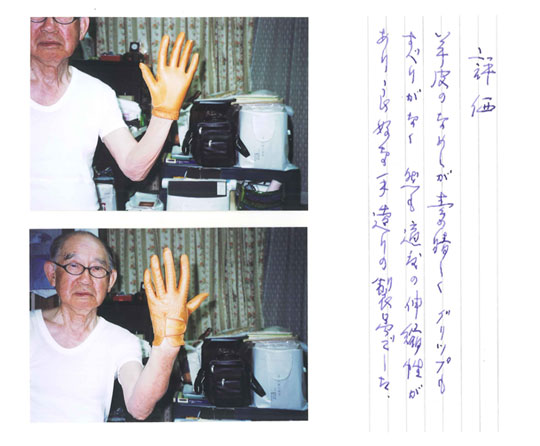 評価
羊皮のなめしが素晴しくグリップも
すべりがなく 然も適度の伸縮性が
あり、良好な手造りの製品でした。